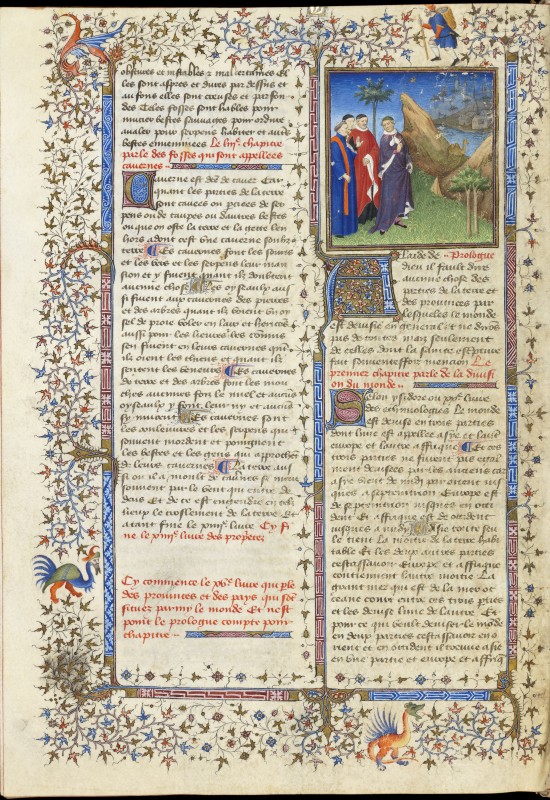 obscures et instables & mal certaines Et
les sont aspres et dures par dessus et
au fons elles sont creuses et parfon
des Teles fosses sont hables pour
mucier bestes sauvaiges pour ordure
avaler pour serpens habiter et aut's
bestes envenimees Le chapitre
parle des fosses qui sont appellees
cavernes
Caverne est de caver Car
quant les parties de la terre
sont cavees ou prices de ser
pens ou de taupes ou dautres bestes
ou que on oste la terre et la gette len
hors adont cest une caverne soubz
terre Es cavernes sont les souris
et les vers et les serpens leur man
sion et y fuient quant ilz doubtent
aucune chose Les oyseaulx aussi
si fuient aux cavernes des pierres
et des arbres quant ilz voient un oy
sel de proie voler en laer et hericos
aussi pour les lieures les connins
sen fuient en leurs cavernes qnt
ilz oient les chiens et quant ilz
sentent les veneurs Es cavernes
de terre et des arbres font les mou
ches aucunes fois le miel et aucuns
oyseaulx y font leur ny et aucuns
sy mucent Es cavernes sont
les couleuvres et les serpens qui
souvent mordent et poingnent
les bestes et les gens qui approchent
de leurs cavernes La terre aussi
ou il a moult de cavernes se meut
souvent par le vent qui entre de
dens Et de ce est engendre en tel
lieux le croslement de la terre Et
atant fine le livre Cy fi
ne le livre des proprietez
Cy commence le livre qui ple
des provinces et des pays qui sont
situez parmy le monde Et nest
point le prologue compte pour
chapitre
A laide de Prologue
dieu il fault dire
aucune chose des
parties de la terre et
des provinces par
lesquelles le monde
est devisie en general et ne dirons
pas de toutes mais seulement
de celles dont la sainte escripture
fait souventeffois mencion Le
premier chapitre parle de la divisi
on du monde
Selon ysidore ou livre
des ethimologies Le monde
est devise en trois parties
dont lune est appellee asye et lautre
europe et lautre affrique Et ces
trois parties ne furent pas egale
ment devisees par les anciens car
asye vient de midi par orient jus
ques a septentrion Europe est
de septentrion jusques en occi
dent Et affrique est de occident
jusques a midy Asie toute seu
le tient La moitie de la terre habi
table Et les deux autres parties
cestassavoir Europe et affrique
contiennent lautre moitie La
grant mer qui est de la mer o
ceane court entre ces trois parties
et les devise lune de lautre Et
pour ce qui veult deviser le monde
en deux parties cestassavoir en o
rient et en occident il treuve asie
en une partie et europe et affriq